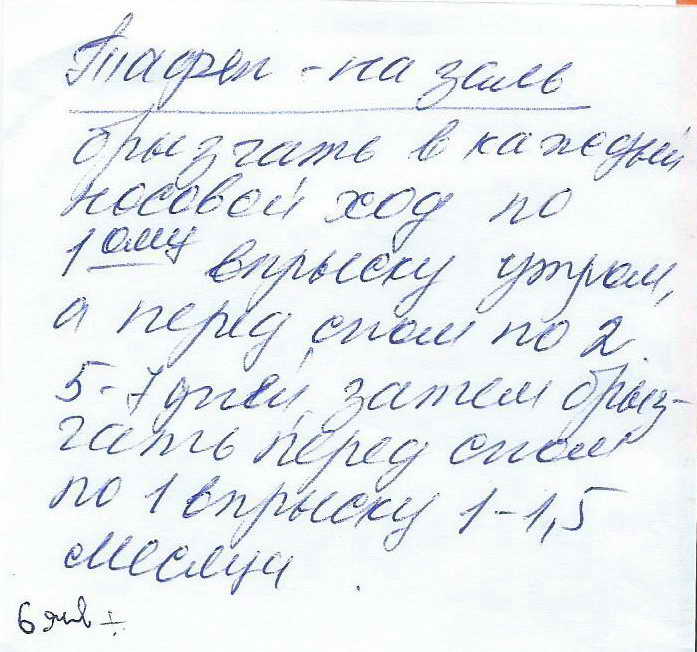 Тафен-назаль
брызгать в каждый
носовой ход по
1ому впрыску утром,
а перед сном по 2
5-7 дней, затем брыз-
гать перед сном
по 1 впрыску 1-1,5
месяца
6 янв